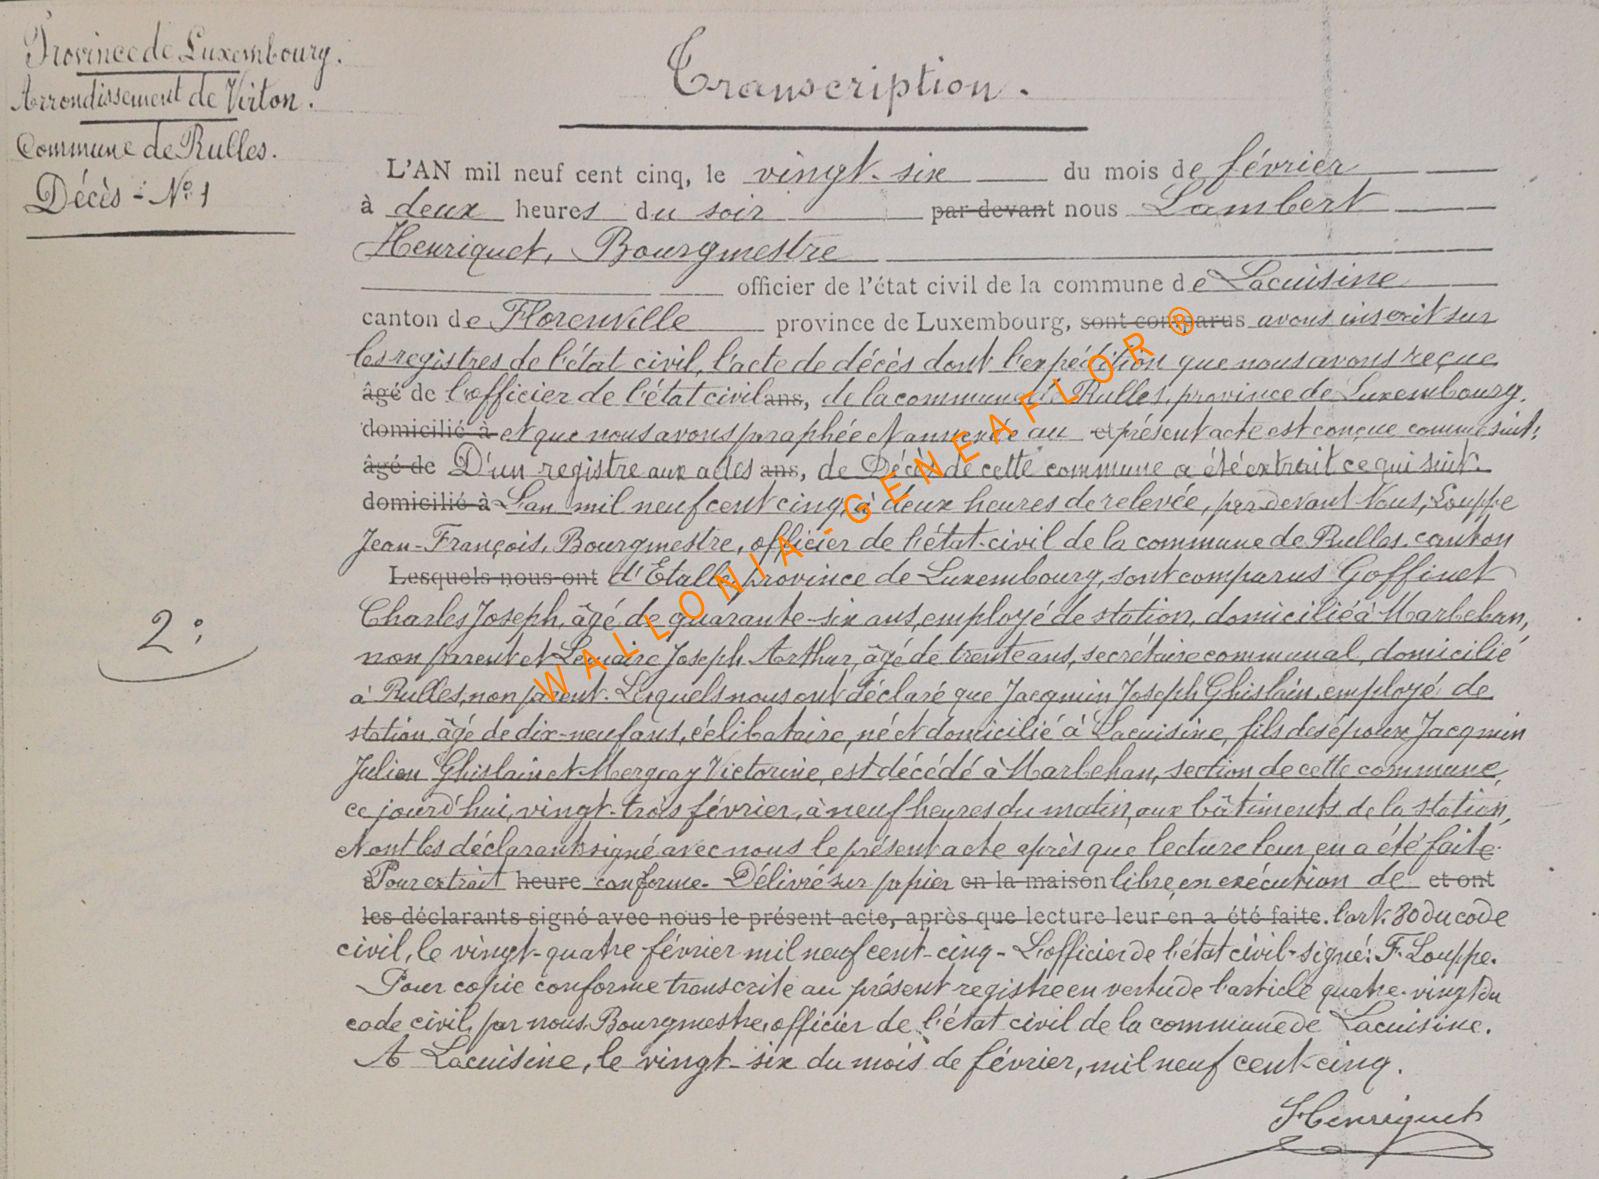 Province de Luxembourg.
Arrondissement de Virton.
Commune de Rulles.
Décès - N° 1
Transcription.
L'AN mil neuf cent cinq, le vingt-six du mois de février
à deux heures du soir par devant nous Lambert
Henriquet, Bourgmestre
officier de l'état civil de la commune de Lacuisine
canton de Florenville province de Luxembourg, sont comparus avons inscrit sur
les registres de l'état civil, l'acte de décès dont l'expédition que nous avons reçue
âgé de l'officier de l'état civil ans, de la commune de Rulles, province de Luxembourg.
domicilié à et que nous avons paraphée et annexée au et présent acte est conçue comme suit:
âgé de D'un registre aux actes ans, de Décès de cette commune a été extrait ce qui suit.
domicilié à L'an mil neuf cent cinq, à deux heures de relevée, par devant Nous, Louppe
Jean-François, Bourgmestre, officier de l'état-civil de la commune de Rulles, canton
Lesquels nous ont d'Etalle, province de Luxembourg, sont comparus Goffinet
Charles Joseph, âgé de quarante-six ans, employé de station, domicilié à Marbehan,
non parent et Lemaire Joseph Arthur, âgé de trente ans, secrétaire communal, domicilié
à Rulles, non parent. Lesquels nous ont déclaré que Jacqmin Joseph Ghislain, employé de
station, âgé de dix-neuf ans, célibataire, né et domicilié à Lacuisine, fils des époux Jacqmin
Julien Ghislain et Mergay Victorine, est décédé à Marbehan, section de cette commune,
ce jourd'hui, vingt-trois février, à neuf heures du matin, aux bâtiments de la station,
et ont les déclarants signé avec nous le présent acte après que lecture leur en a été faite.
Pour extrait heure conforme. Délivré sur papier en la maison libre, en exécution de et ont
les déclarants signé avec nous le présent acte, après que lecture leur en a été faite. l'art. 80 du code
civil, le vingt-quatre février mil neuf cent-cinq - L'officier de l'état civil - signé: F. Louppe.
Pour copie conforme transcrite au présent registre en vertu de l'article quatre-vingt du
code civil, par nous Bourgmestre, officier de l'état civil de la commune de Lacuisine.
A Lacuisine, le vingt-six du mois de février, mil neuf cent-cinq.
Henriquet
2°
WALLONIA-GENEAFLOR ®